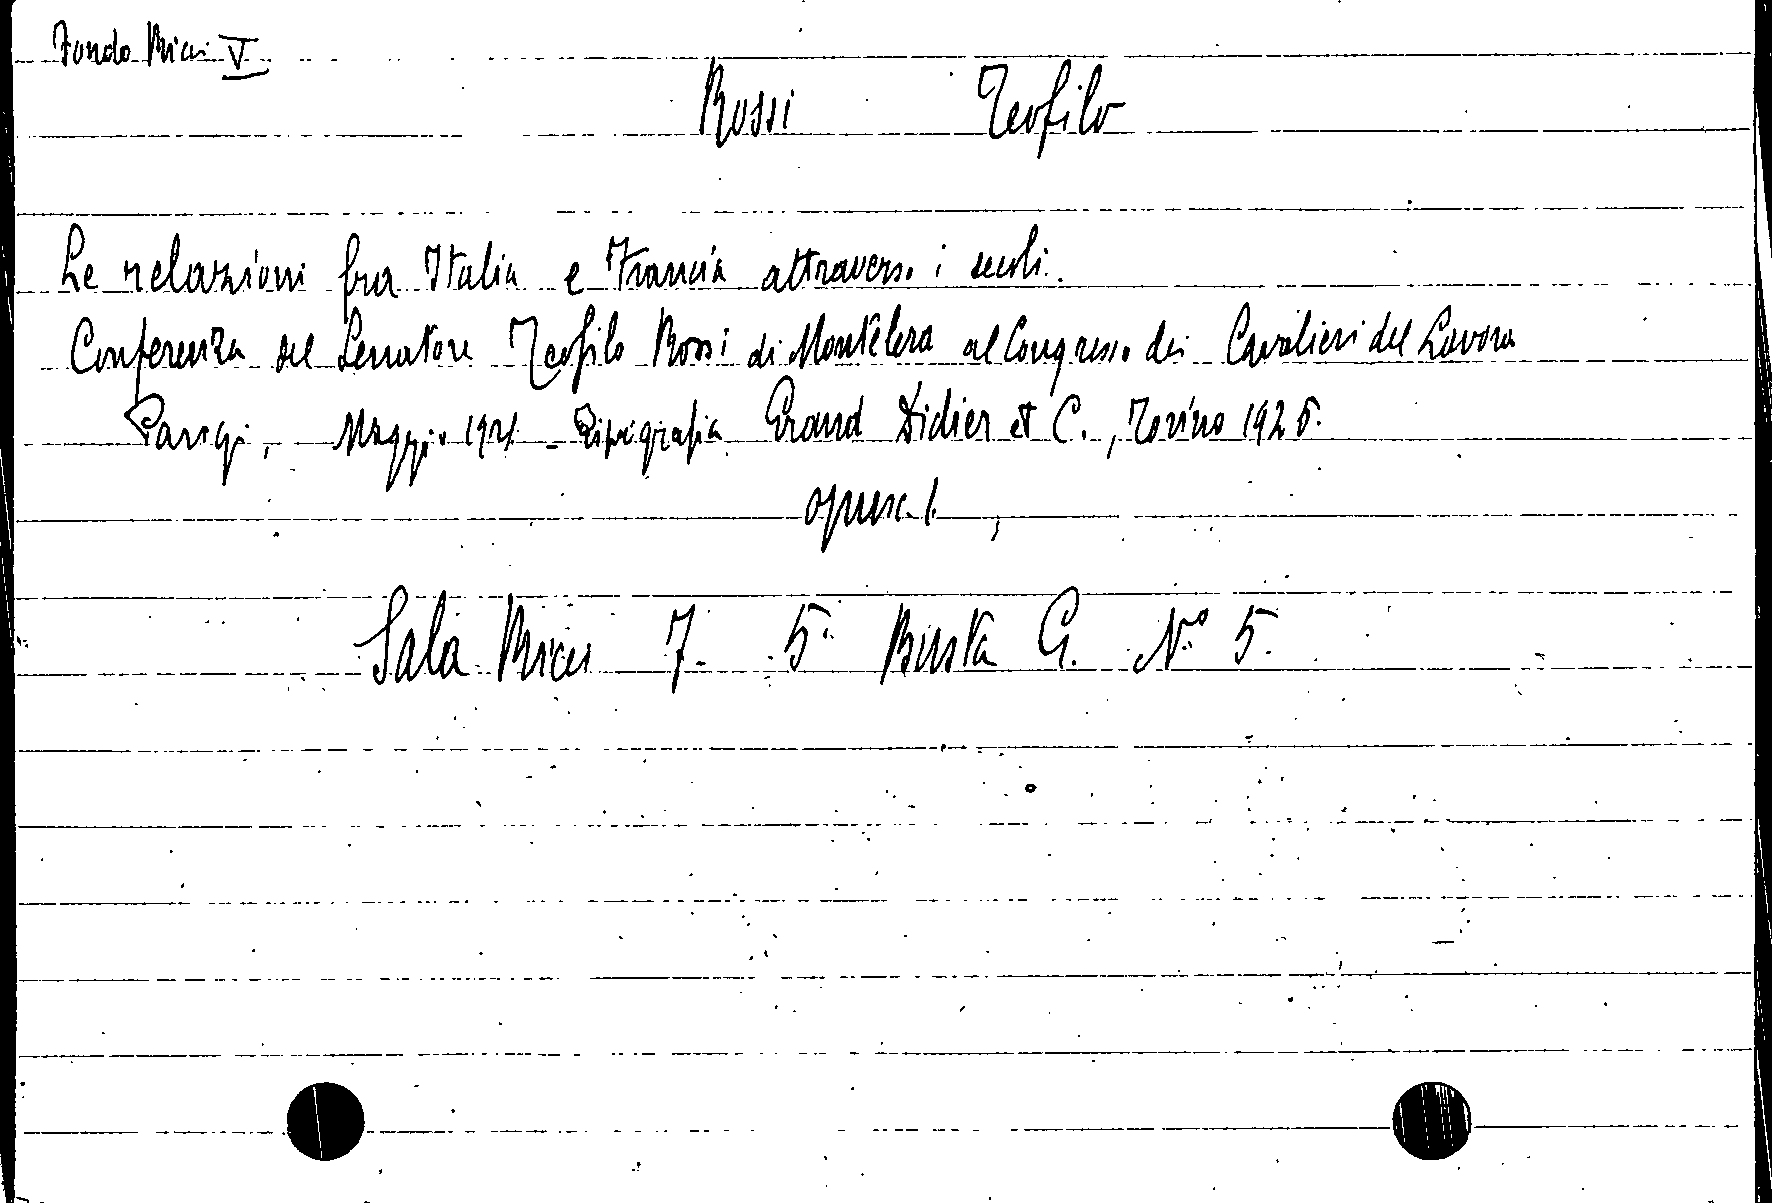 Fondo Ricci V
Rossi Teofilo
Le relazioni fra Italia e Francia attraverso i secoli.
Conferenza del Senatore Teofilo Rossi di Montelera al Congresso dei Cavalieri del Lavoro
Parigi, Maggio 192 - Tipografia Grand Didier et C., Torino 1925.
opusc. 1.
Sala Ricci 7. 5. Busta G. N.° 5.